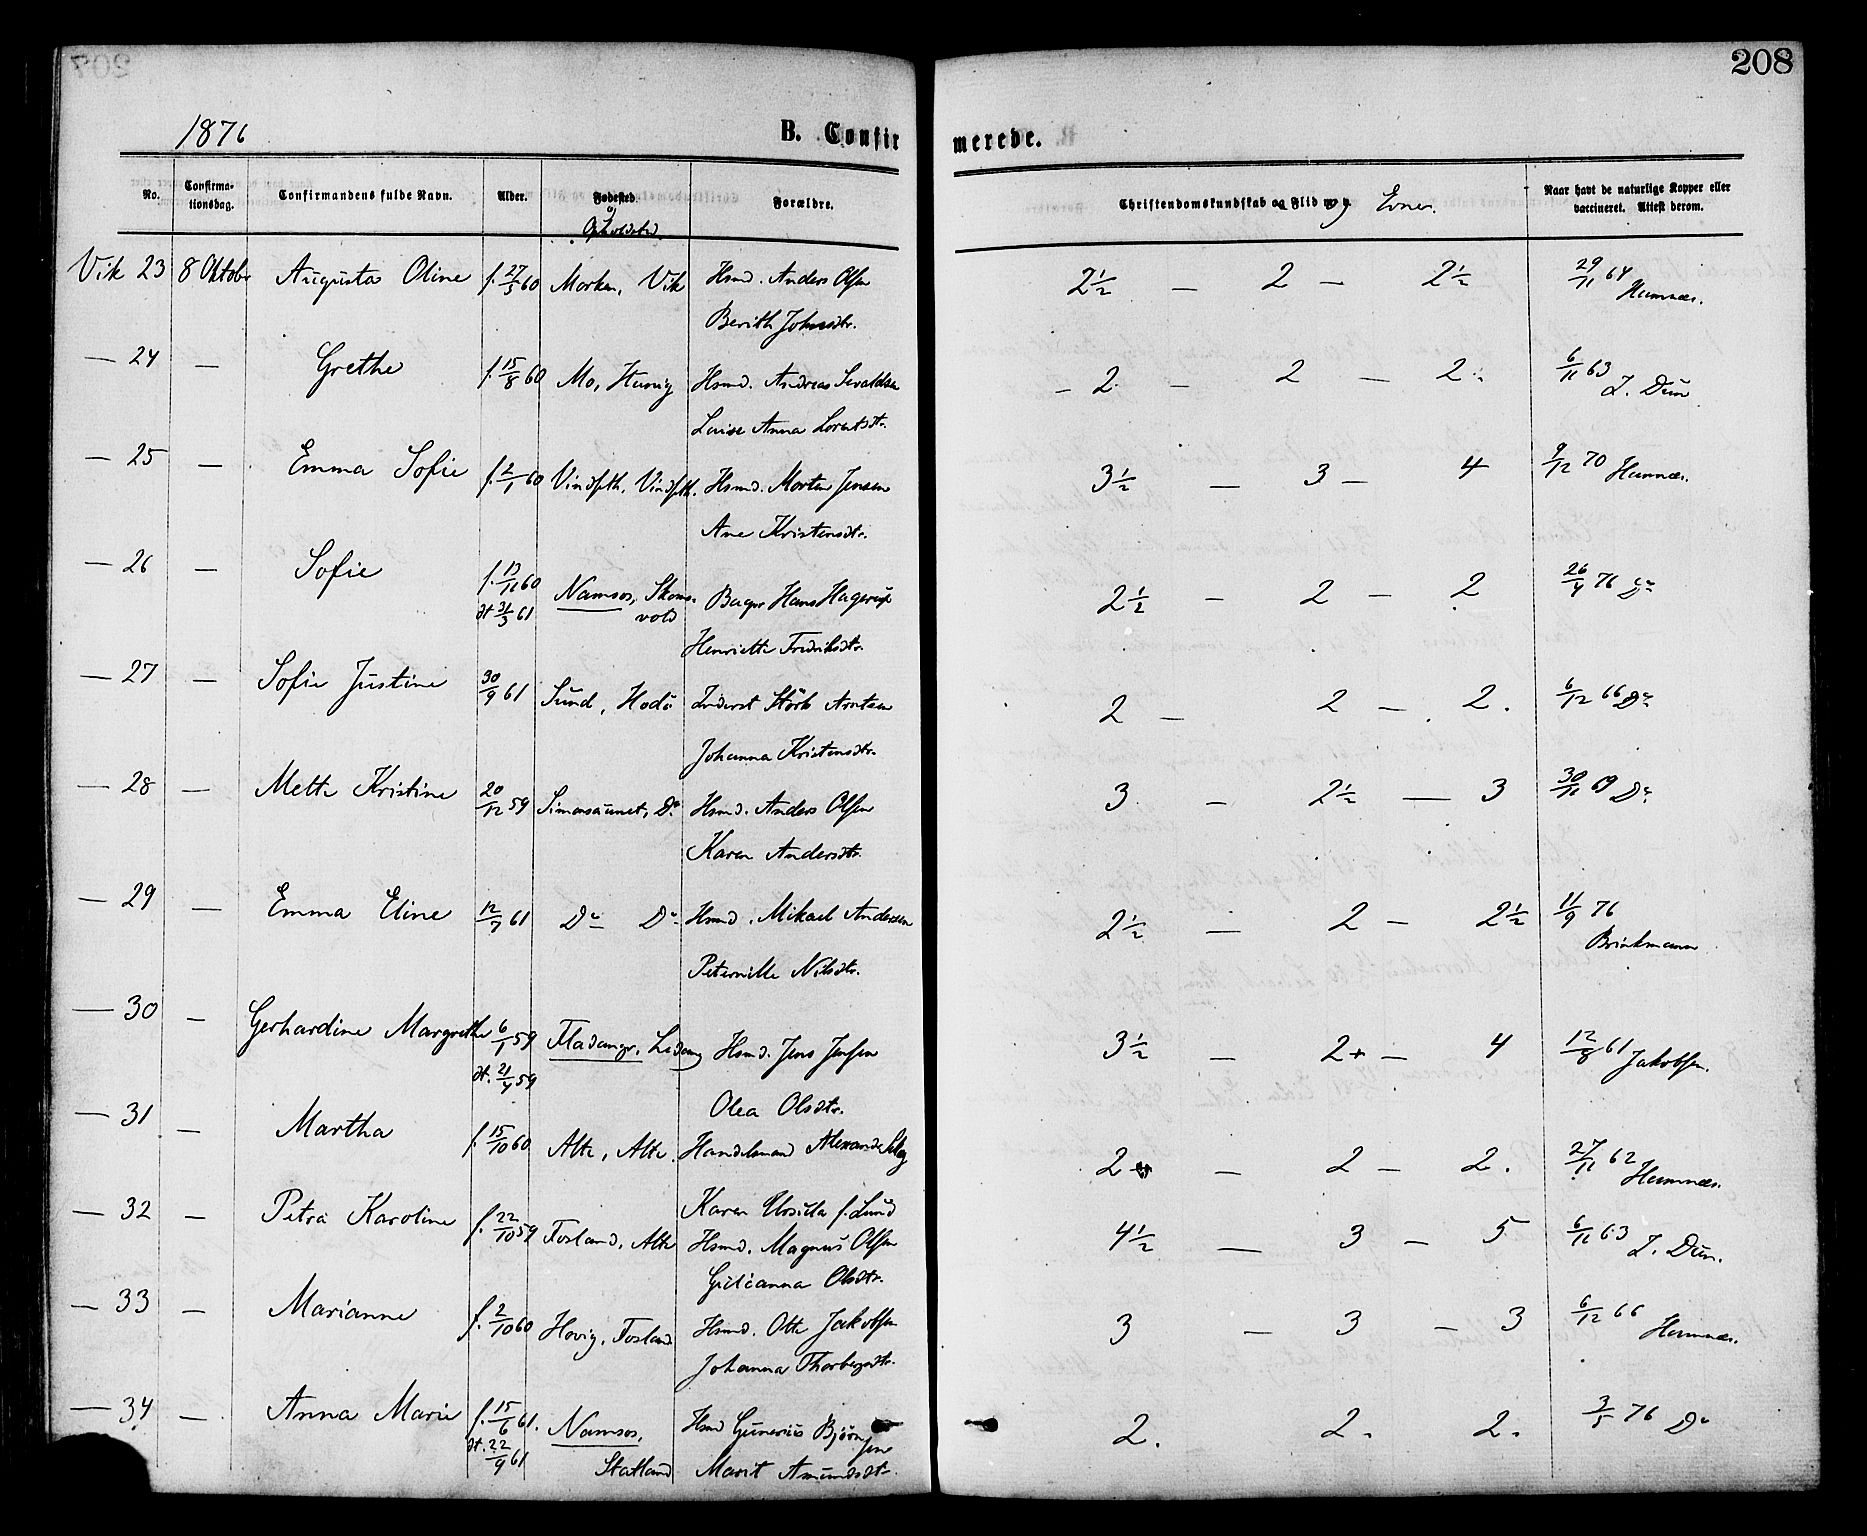 207
208
1876
B. Confir
merede.
No.
Confirma-
tionsdag.
Confirmandens fulde Navn.
Alder.
Fødested
og
Opholdsted
Forældre.
Christendomskundskab og Flid og Evner.
Naar havt de naturlige Kopper eller
vaccineret. Attest derom.
Vik 23 8 Oktobr Augusta Oline f. 27/5 60 Morken, Vik Hsmd. Anders Olsen
Berith Johnsdtr.
2½ — 2 — 2½ 29/11 64 Humnæs.
— 24 — Grethe f. 15/8 60 Mo, Hunvig Hsmd. Andreas Sivaldsen
Louise Anna Lorntsdtr.
— 2 — 2 — 2. 6/11 63 Z. Dun
— 25 — Emma Sofie f. 2/1 60 Vindsth, Vindsth. Hsmd. Morten Jensen
Ane Kristensdtr.
3½ — 3 — 4 9/12 70 Humnæs.
— 26 — Sofie f. 13/11 60
dt 31/3 61
Namsos, Skoms-
vold
Bager Hans Hagerup
Henriette Fredriksdtr.
2½ — 2 — 2 26/4 76 Do
— 27 — Sofie Justine 30/9 61 Sund, Hodø Inderst Stork Arntsen
Johanna Kristensdtr.
2 — 2 — 2. 6/12 66 Do
— 28 — Mette Kristine 20/12 59 Simonsaunet, Do Hsmd. Anders Olsen
Karen Andersdtr.
3 — 2½ — 3 30/11 69 Do
— 29 — Emma Eline 12/7 61 Do Do Hsmd. Mikael Andersen
Peternille Nilsdtr.
2½ — 2 — 2½ 11/9 76
Brinkmann
— 30 — Gerhardine Margrethe 6/1 59
dt. 21/4 59
Fladanger, Ledang Hsmd. Jens Jensen
Olea Olsdtr.
3½ — 2+ — 4 12/8 61 Jakobsen.
— 31 — Martha f. 15/10 60 Alte, Alte. Handelsmand Alexander
Karen Ursilla f. Lund
2+ — 2 — 2. 27/11 62 Humnæs.
— 32 — Petra Karoline f. 22/10 59 Fosland, Alte Hsmd. Magnus Olsen
Gidianna Olsdtr.
4½ — 3 — 5 6/11 63 Z. Dun.
— 33 — Marianne f. 2/10 60 Hovig, Fosland Hsmd. Otte Jakobsen
Johanna Thorbergsdtr.
3 — 3 — 3 6/12 66 Humnæs.
— 34 — Anna Marie f. 15/6 61.
dt. 22/9 61
Namsos,
Statland
Hsmd Gunerius Bjørnsen
Marit Amundsdtr.
2. 2. 2. 3/5 76 Do